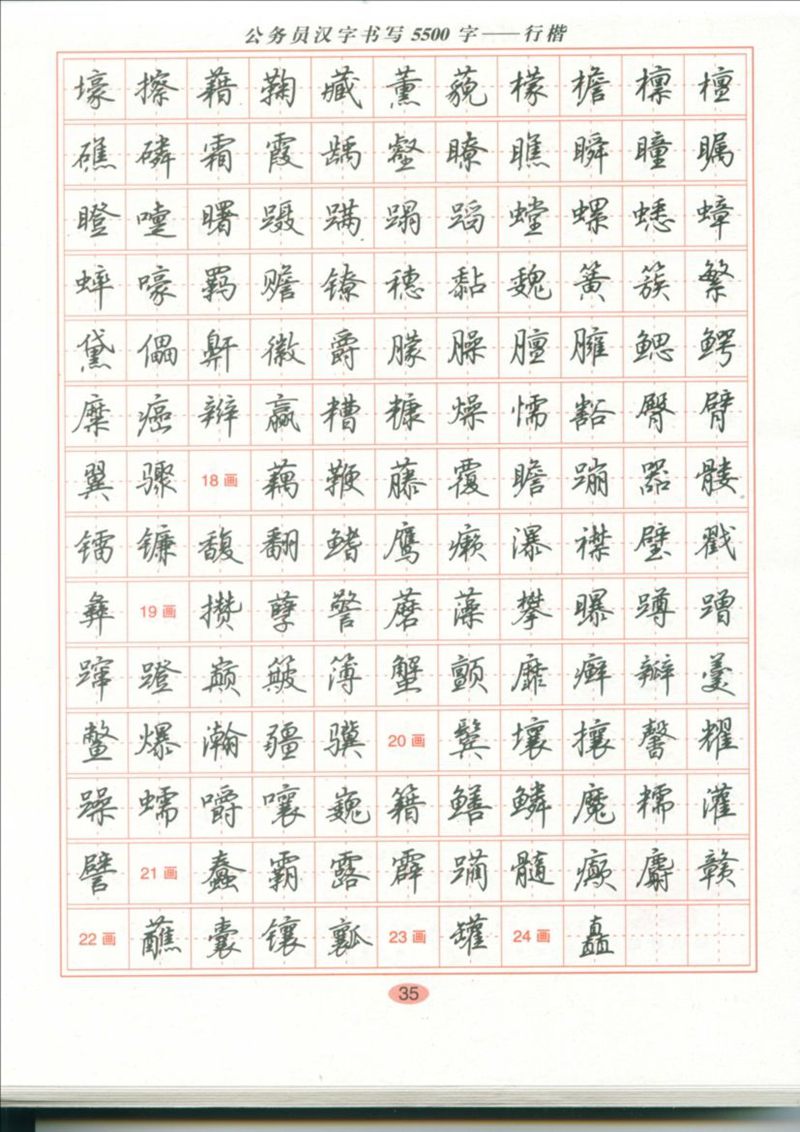 公务员汉字书写5500字——行楷
壕擦藉鞠藏薰藐檬檐檩檀
礁磷霜霞龋壑瞭瞧瞬瞳瞩
瞪嚏曙蹑蹒蹋蹈螳螺蟋蟑
蟀嚎羁赡镣穗黏魏簧簇繁
黛儡鼾徽爵朦臊膻臃鳃鳄
糜癌辫赢糟糠燥懦豁臀臂
翼骤18画藕鞭藤覆瞻蹦嚣髅
镭镰馥翻鳍鹰癞瀑襟璧戳
彝19画攒孽警蘑藻攀曝蹲蹭
蹿蹬巅簸簿蟹颤靡癣瓣羹
鳖爆瀚疆骥20画鬓壤攘馨耀
躁蠕嚼嚷巍籍鳝鳞魔糯灌
譬21画蠢霸露霹躏髓癫麝赣
22画蘸囊镶瓤23画罐24画矗
35